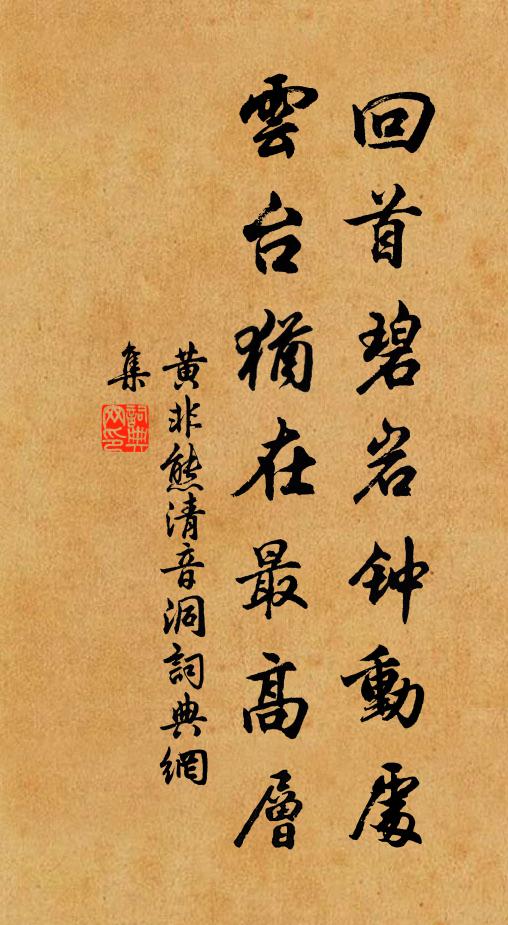 回首碧岩钟動處
雲台猶在最高層
黄非熊清音洞詞典網
集
詞典
网印